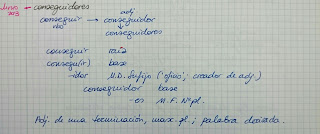 - conseguidores
adj.
conseguir → conseguidor
vbo
conseguidores
conseguir raíz
consegu(ir) base
-idor M.D. Sufijo ("oficio"; creador de adj.)
conseguidor base
-es M.F. Nº pl.
Adj. de una terminación, masc. pl.; palabra derivada.